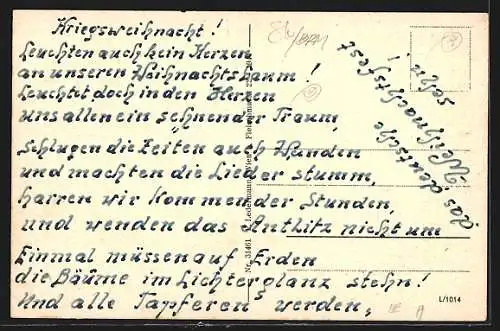 Kriegsweihnacht!
Leuchten auch kein Kerzen
an unseren Weihnachtsbaum!
Leuchtet doch in den Herzen
uns allen ein sehnender Traum,
Schlugen die Zeiten auch Wunden
und machten die Lieder stumm,
harren wir Kommender Stunden,
und wenden das Antlitz nicht um
Einmal müssen auf Erden
die Bäume im Lichterglanz stehn!
Und alle Tapferen werden,
das deutsche
Weihnachtsfest
sehn!
Nr. 31461 Ledermann, Wien
L/1014